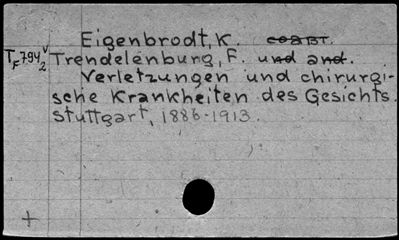 Eigenbrodt, K.
T 794 v
F 2
Trendelenburg, F. und and.
Verletzungen und chirurgi-
sche Krankheiten des Gesichts.
Stuttgart, 1886-1913.